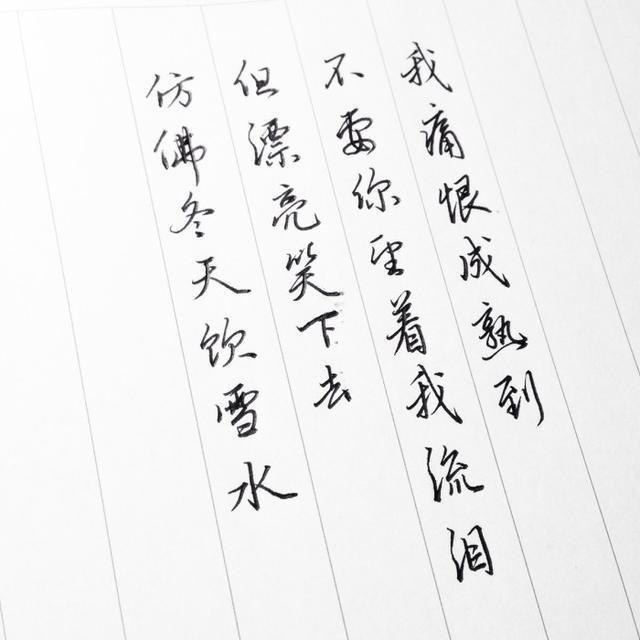 我痛恨成熟到
不要你望着我流泪
但漂亮笑下去
仿佛冬天饮雪水